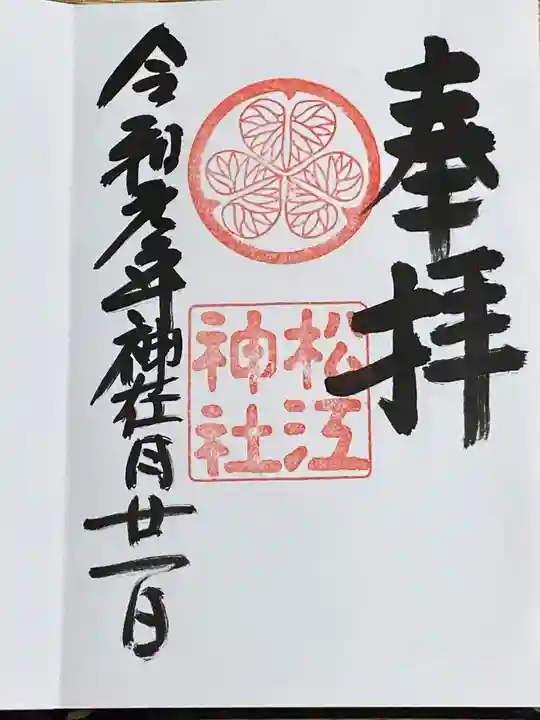 奉拝
松江
神社
令和元年神在月廿一日